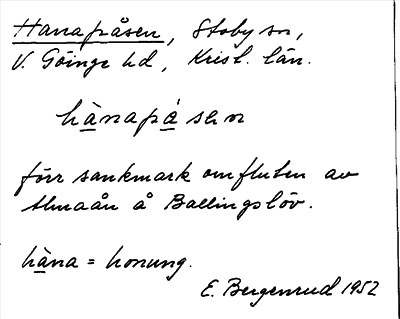 Hanapåsen, Stoby sn,
V. Göinge hd, Krist. län.
hånapǻsen
förr sankmark omfluten av
Almaån å Ballingslöv.
håna = honung.
E. Bergenrud 1952